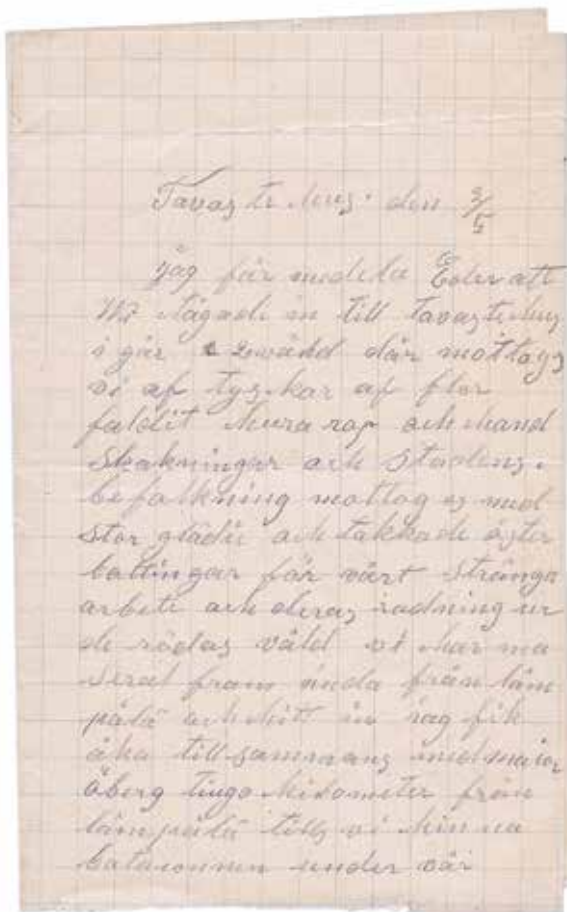 Tavaste hus. den 3/5
jag får medela Eder att
Wi tågade in till tavastehus
i går där mottogs
vi af tyskar af fler
faldit hura rop och hand
skakningar och stadens
befalkning mottog os med
stor glädie och takkade öster
battingar får vårt stränga
arbete och deras radning ur
de rödas våld vi har ma
serat fram enda från läm
pälä och hit in iag fik
åka till sammans med maior
Åberg tiugo kilometer från
lämpälä tills vi hin na
bataionnen under vår